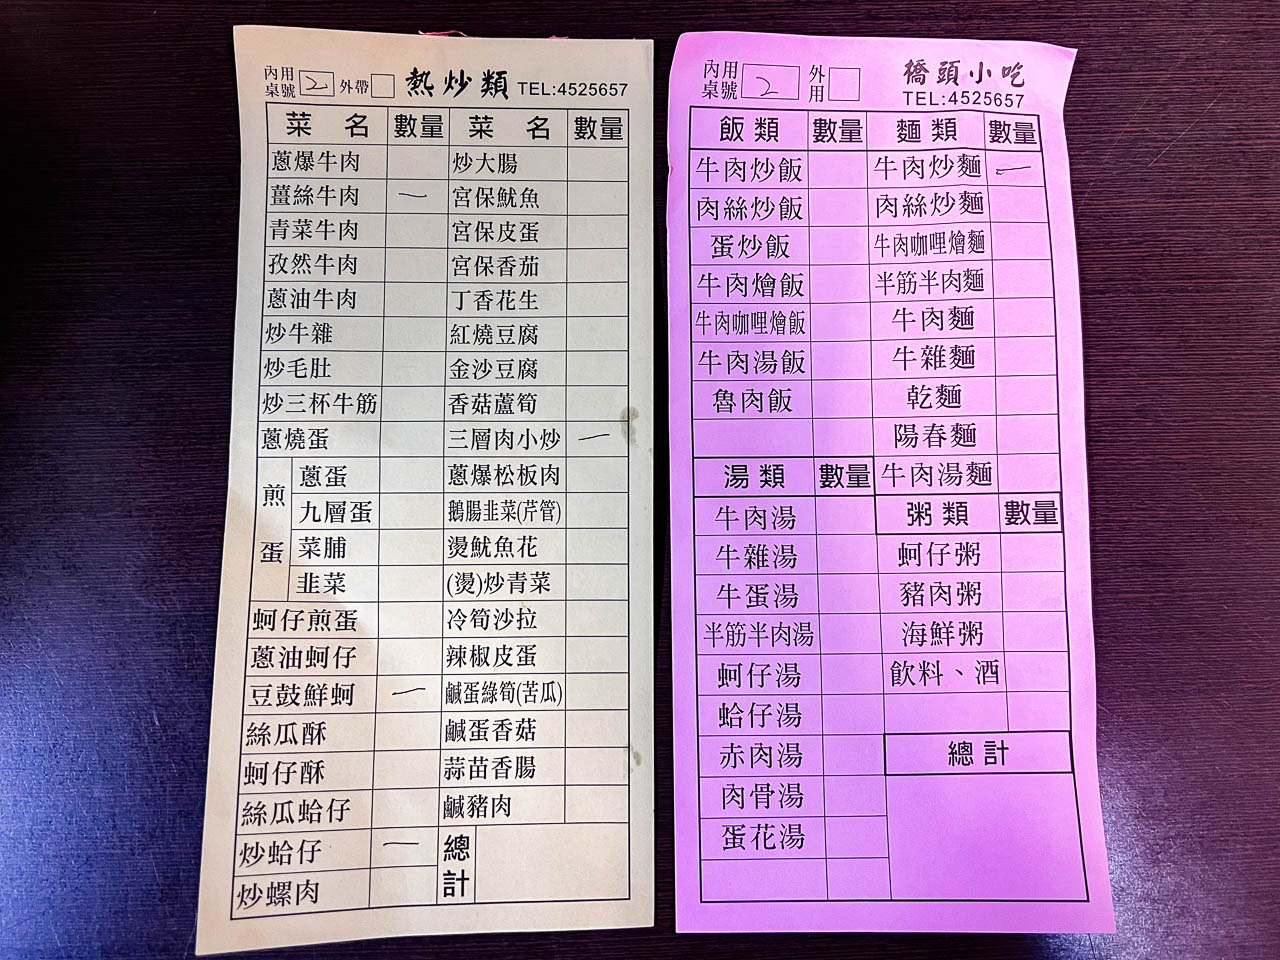 內用 桌號 2 外帶 熱炒類 TEL:4525657
菜名 數量 菜名 數量
蔥爆牛肉 炒大腸
薑絲牛肉 一 宮保魷魚
青菜牛肉 宮保皮蛋
孜然牛肉 宮保香茄
蔥油牛肉 丁香花生
炒牛雜 紅燒豆腐
炒毛肚 金沙豆腐
炒三杯牛筋 香菇蘆筍
蔥燒蛋 三層肉小炒 一
煎蛋 蔥蛋 蔥爆松板肉
九層蛋 鵝腸韭菜(芹管)
菜脯 燙魷魚花
韭菜 (燙)炒青菜
蚵仔煎蛋 冷筍沙拉
蔥油蚵仔 辣椒皮蛋
豆鼓鮮蚵 一 鹹蛋綠筍(苦瓜)
絲瓜酥 鹹蛋香菇
蚵仔酥 蒜苗香腸
絲瓜蛤仔 鹹豬肉
炒蛤仔 一 總計
炒螺肉
內用 桌號 2 外用 橋頭小吃
TEL:4525657
飯類 數量 麵類 數量
牛肉炒飯 牛肉炒麵 一
肉絲炒飯 肉絲炒麵
蛋炒飯 牛肉咖哩燴麵
牛肉燴飯 半筋半肉麵
牛肉咖哩燴飯 牛肉麵
牛肉湯飯 牛雜麵
魯肉飯 乾麵
陽春麵
湯類 數量 牛肉湯麵
牛肉湯 粥類 數量
牛雜湯 蚵仔粥
牛蛋湯 豬肉粥
半筋半肉湯 海鮮粥
蚵仔湯 飲料、酒
蛤仔湯
赤肉湯 總計
肉骨湯
蛋花湯